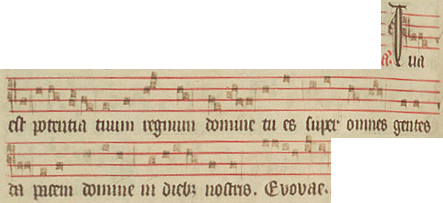 Tua
est potentia tuum regnum domine tu es super omnes gentes
da pacem domine in dieb₃ nostris. Evovae.